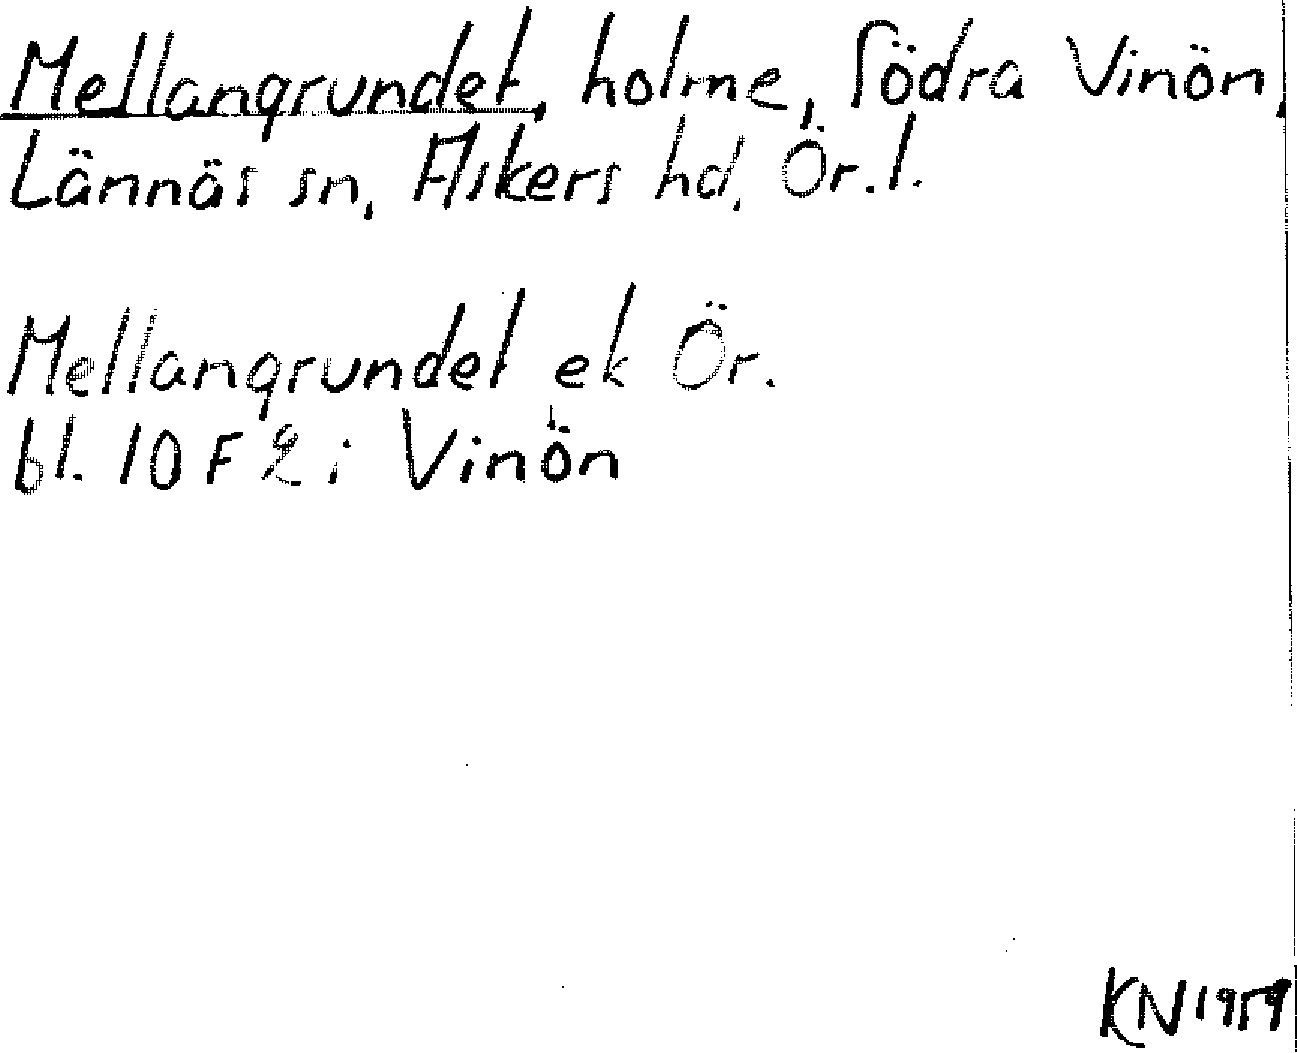 Mellangrundet, holme, Södra Vinön,
Lännäs sn, Askers hd, Ör. l.
Mellangrundet ek Ör.
bl. 10 F 2 i Vinön
KN 1959